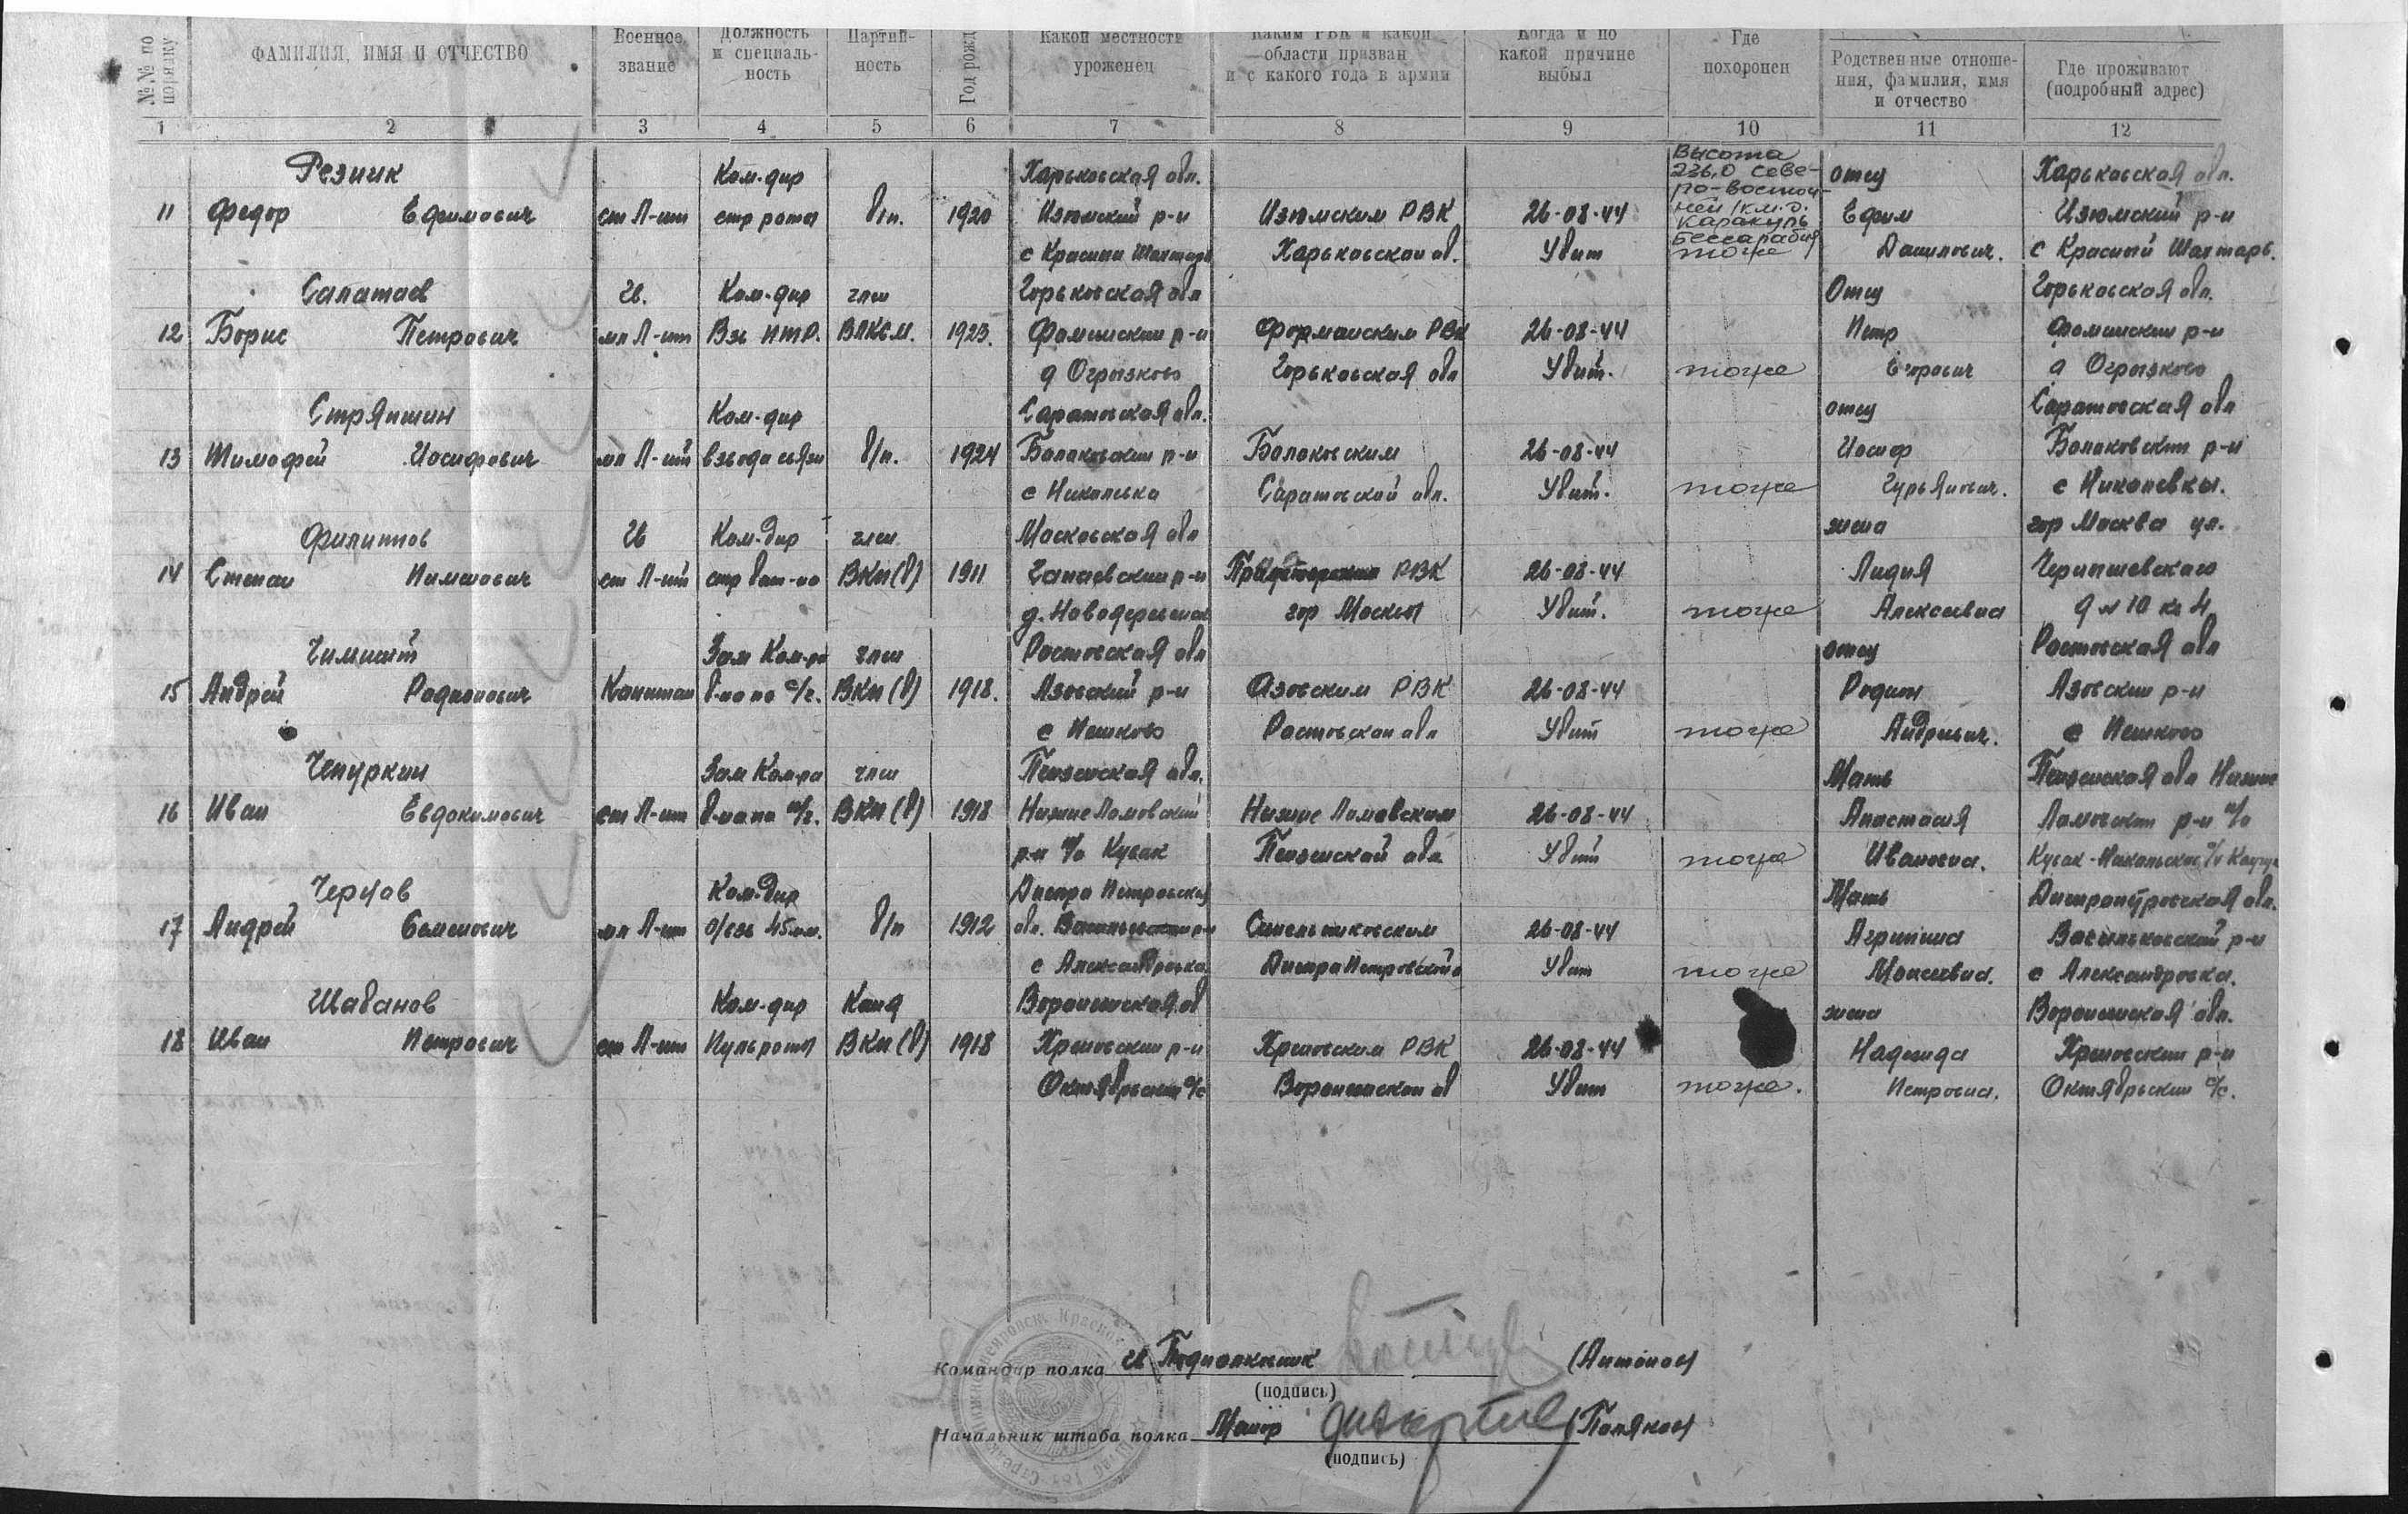 №№ по порядку
ФАМИЛИЯ, ИМЯ И ОТЧЕСТВО
Военное звание
Должность и специаль-ность
Партий-ность
Год рожд
Какой местности уроженец
Каким РВК и какой области призван и с какого года в армии
Когда и по какой причине выбыл
Где похоронен
Родственные отноше-ния, фамилия, имя и отчество
Где проживают (подробный адрес)
1 2 3 4 5 6 7 8 9 10 11 12
Резник Ком-дир Харьковская обл. Высота 236,0 севе-ро-восточ- отец Харьковская обл.
11 Федор Ефимович ст Л-нт стр роты б/п. 1920 Изюмский р-н Изюмским РВК 26-08-44 ней 1км. д. Каракуль Ефим Изюмский р-н
с Красный Шахтарь Харьковской об. Убит Бессарабия тоже Данилович. с Красный Шахтарь.
Салатаев Гв. Ком-дир член Горьковская обл Отец Горьковская обл.
12 Борис Петрович мл Л-нт Взв ПТР. ВЛКСМ. 1923. Фоминский р-н РВК 26-08-44 Петр Фоминский р-н
д Огрызково Горьковская обл Убит. тоже Егорович д Огрызково
Стряпшин Ком-дир Саратовская обл. отец Саратовская обл
13 Тимофей Иосифович мл Л-нт взвода связи б/п. 1924 Балаковский р-н Балаковским 26-08-44 Иосиф Балаковский р-н
с Саратовской обл. Убит. тоже Гурьянович. с
Филиппов Гв Ком-дир член Московская обл жена гор Москва ул.
14 Степан ст Л-нт стр бат-на ВКП(б) 1911 р-н РВК 26-08-44 Лидия
д. гор Москвы Убит. тоже Алексеевна д № 10 кв 4
Зам Ком-ра член Ростовская обл отец Ростовская обл
15 Андрей Родионович Капитан б-на по с/ч. ВКП(б) 1918. Азовский р-н Азовским РВК 26-08-44 Родион Азовский р-н
с Пешково Ростовской обл Убит тоже Андреевич. с Пешково
Чепуркин Зам Ком-ра член Пензенская обл. Мать Пензенская обл Нижне
16 Иван Евдокимович ст Л-нт б-на по п/ч. ВКП(б) 1918 Нижне Ломовский Нижне Ломовским 26-08-44 Анастасия Ломовский р-н п/о
р-н п/о Кувак Пензенской обл. Убит тоже Ивановна. Кувак-Никольское
Ком-дир Днепро Петровская Мать Днепропетровская обл.
17 Андрей Семенович мл Л-нт о/взв 45мм. б/п 1912 обл. Васильковский р-н Синельниковским 26-08-44 Агрипина Васильковский р-н
с Александровка ДнепроПетровской о Убит тоже Моисеевна. с Александровка.
Шабанов Ком-дир Канд Воронежская об жена Воронежская обл.
18 Иван Петрович ст Л-нт Пульроты ВКП(б) 1918 Хреновский р-н Хреновским РВК 26-08-44 Надежда Хреновский р-н
Октябрьский с/с Воронежской об Убит тоже. Петровна. Октябрьский с/с.
Командир полка Гв Подполковник (Антонов)
(подпись)
Начальник штаба полка Майор (Поляков)
(подпись)